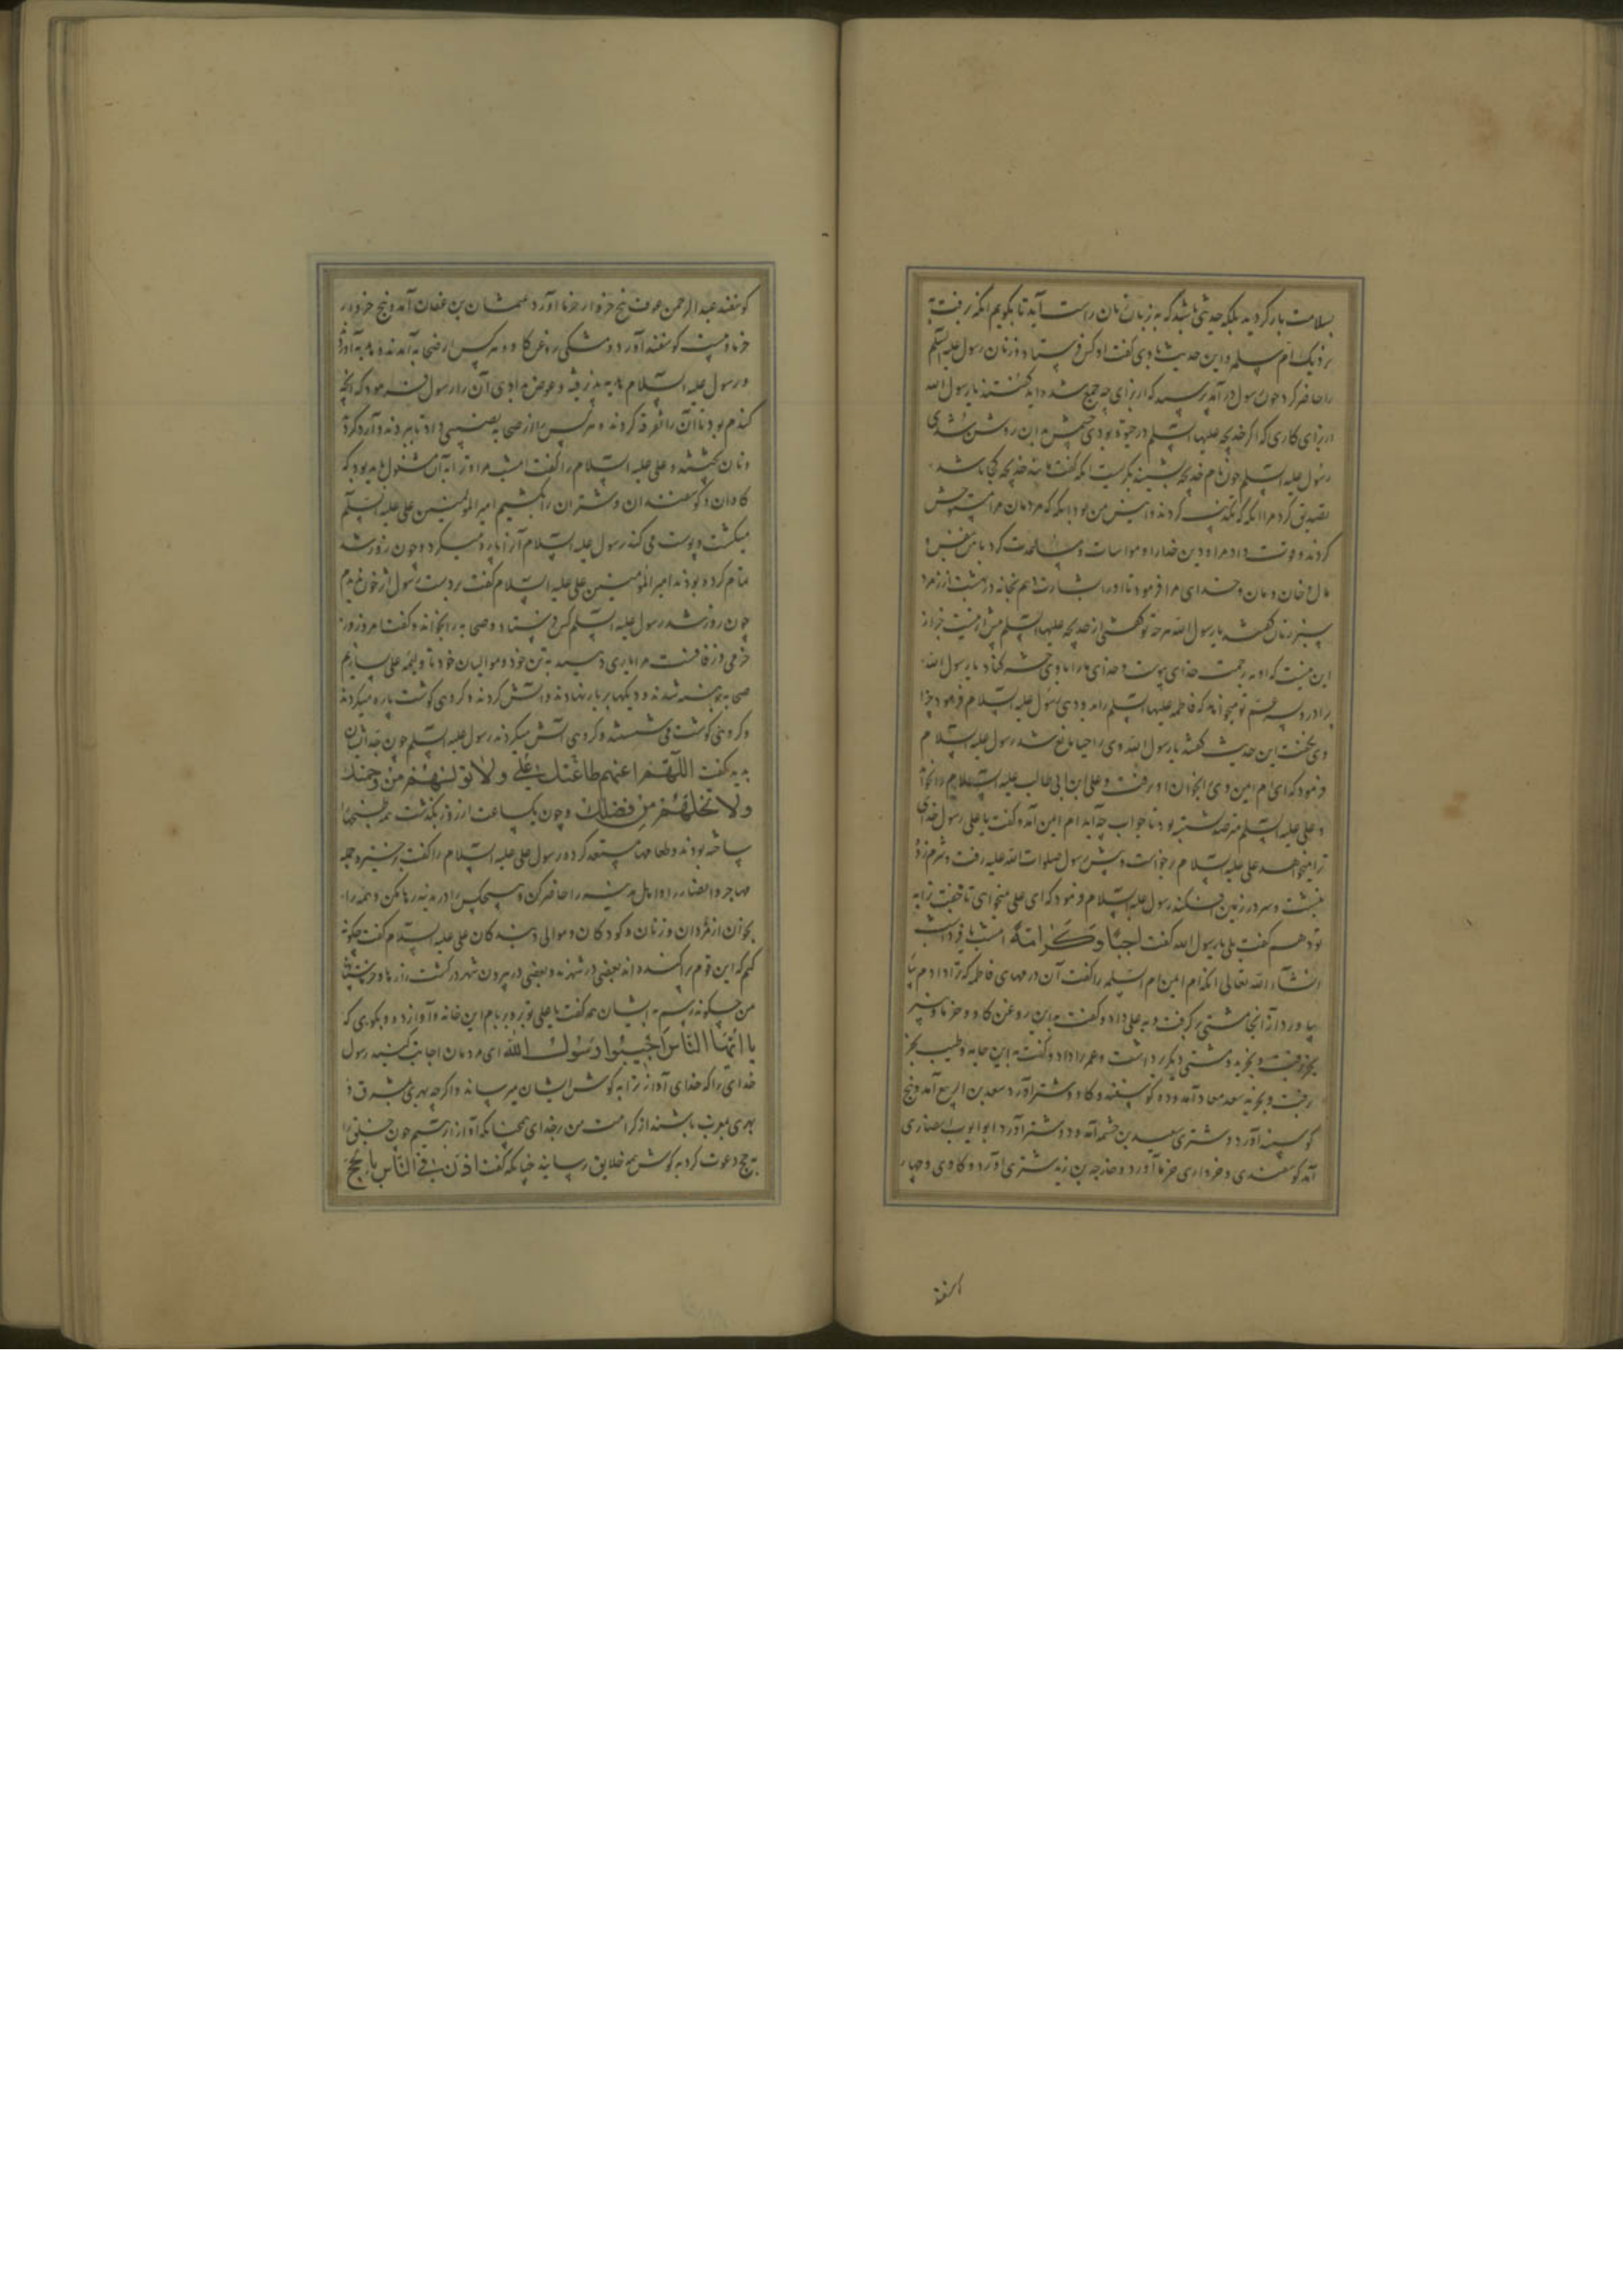 بسلامت باز کردید بلکه حدیثی باشد که به زبان زنان راست آید تا بگویم آنکه برفت به
نزدیک ام سلمه و این حدیث با وی گفت او کس فرستاد و زنان رسول علیه السلم
را حاضر کرد چون رسول در آمد پرسید که از برای چه جمع شده اید گفتند یا رسول الله
از برای کاری که اگر خدیجه علیها السلم در حیوة بودی چشم بدان روشن شدی
رسول علیه السلم چون نام خدیجه بشنید بگریست آنکه گفت مانند خدیجه کجا باشد
تصدیق کرد مرا آنکه که تکذیب کردند و انیس من بود آنکه که مردمان مرا مستوحش
کردند و قوت داد مرا و دین خدا را و مواسات و مساعدت کرد با من بنفس و
مال و خان و مان و خدای مرا فرمود تا او را بشارت دهم بخانه در بهشت از زمرد
سبز زنان گفتند یا رسول الله هر چه تو گفتی از خدیجه علیها السلم بیش از آنست جز از
این نیست که او به رحمت خدای پیوست و خدای ما را با وی حشر کناد یا رسول الله
برادر و پسر عم تو میخواهد که فاطمه علیها السلم را بدو دهی رسول علیه السلام فرمود چرا
وی نگفت این حدیث گفتند یا رسول الله وی را حیا مانع شد رسول علیه السلام
فرمود که ای ام ایمن وی را بخوان او رفت و علی ابن ابی طالب علیه السلام را بخواند
و علی علیه السلم مترصد نشسته بود تا جواب چه آید ام ایمن آمد و گفت یا علی رسول خدای
ترا میخواهد علی علیه السلام برخاست و پیش رسول صلوات الله علیه رفت و شرم زده
بنشست و سر در زمین افکند رسول علیه السلام فرمود که ای علی میخواهی تا جفت ترا به
تو دهم گفت بلی یا رسول الله گفت اجبا و کرامة امشب یا فردا شب
انشاء الله تعالی آنکه ام ایمن ام السلمه را گفت آن درمهای فاطمه که ترا دادم بیا
بیاورد از آنجا مشتی برگرفت و به علی داد و گفت به این روغن گاو و خرما و پنیر
بخر رفت و بخرید و مشتی دیگر برداشت و عمر را داد و گفت به این جامه و طیب بخر
رفت و بخرید سعد معاد آمد و ده گوسفند و گاو و شتر آورد سعد بن الربیع آمد و پنج
گوسفند آورد و شتری سعید بن خثیمه آمد و دو شتر آورد ابو ایوب انصاری
آمد گوسفندی و خرواری خرما آورد و خارجه بن زید شتری آورد و گاوی و چهار
گوسفند
گوسفند عبد الرحمن عوف پنج خروار خرما آورد عثمان بن عفان آمد و پنج خروار
خرما و بیست گوسفند آورد و مشکی روغن گاو و هر کس از صحابه آمدند و هدیه آوردند
و رسول علیه السلام هدیه پذیرفتی و عوض بدادی آن را رسول فرمود که آنچه
گندم بود تا آن را تفرقه کردند و هر کس را از صحابه نصیبی داد تا ببردند و آرد کردند
و نان پختند و علی علیه السلام را گفت امشب مرا و ترا به آن مشغول باید بود که
گاوان و گوسفندان و شتران را بکشیم امیر المؤمنین علی علیه السلم
میکشت و پوست می کند رسول علیه السلام آن را پاره میکرد و چون روز شد
تمام کرده بودند امیر المؤمنین علی علیه السلام گفت بر دست رسول اثر خون ندیدم
چون روز شد رسول علیه السلم کس فرستاد و صحابه را بخواند و گفت امروز روز
خرمی و زفافست مرا یاری دهید به تن خود و موالیان خود تا ولیمه علی بسازیم
صحابه جمله شدند و دیگها بر بار نهادند و آتش کردند و گروهی گوشت پاره میکردند
و گروهی گوشت می شستند و گروهی آتش میکردند رسول علیه السلم چون جد ایشان
بدید گفت اللهم اعنهم طاعتک علی ولا تولسهم من رحمتک
ولا تخلهم من فضلک و چون یک ساعت از روز بگذشت همه پختنیها
ساخته بودند و طعامها مستعد کرده رسول علی علیه السلام را گفت برخیز و جمله
مهاجر و انصار را و اهل مدینه را حاضر کن و هیچکس را در مدینه رها مکن و همه را
بخوان از مردان و زنان و کودکان و موالی و بندگان علی علیه السلام گفت چگونه
کنم که این قوم پراکنده اند بعضی در شهر و بعضی در بیرون شهر در کشت زارها و خرمایستان
من چگونه رسم به ایشان همه گفت یا علی تو برو بر بام این خانه و آواز ده و بگوی که
یا ایها الناس اجیبوا رسول الله ای مردمان اجابت کنید رسول
خدای را که خدای آواز ترا به گوش ایشان میرساند و اگر چه بهری بمشرق و
بهری بمغرب باشند از کرامت من بر خدای همچنانکه آواز ابرهیم چون خلق را
به حج دعوت کرد به گوش همه خلایق رسانید چنانکه گفت اذن فی الناس بالحج